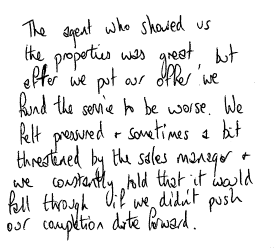 The agent who showed us
the properties was great, but
after we put our offer we
found the service to be worse. We
felt pressured + sometimes a bit
threatened by the sales manager +
we constantly told that it would
fall through if we didn't push
our completion date forward.